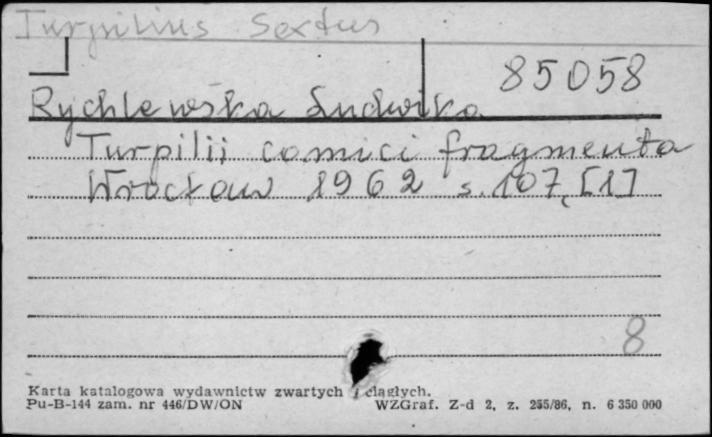 Turpilius Sextus
85058
Rychlewska Ludwika
Turpilii comici fragmenta
Wrocław 1962 s. 107, [1]
8
Karta katalogowa wydawnictw zwartych i ciągłych.
Pu-B-144 zam. nr 446/DW/ON WZGraf. Z-d 2, z. 255/86, n. 6 350 000